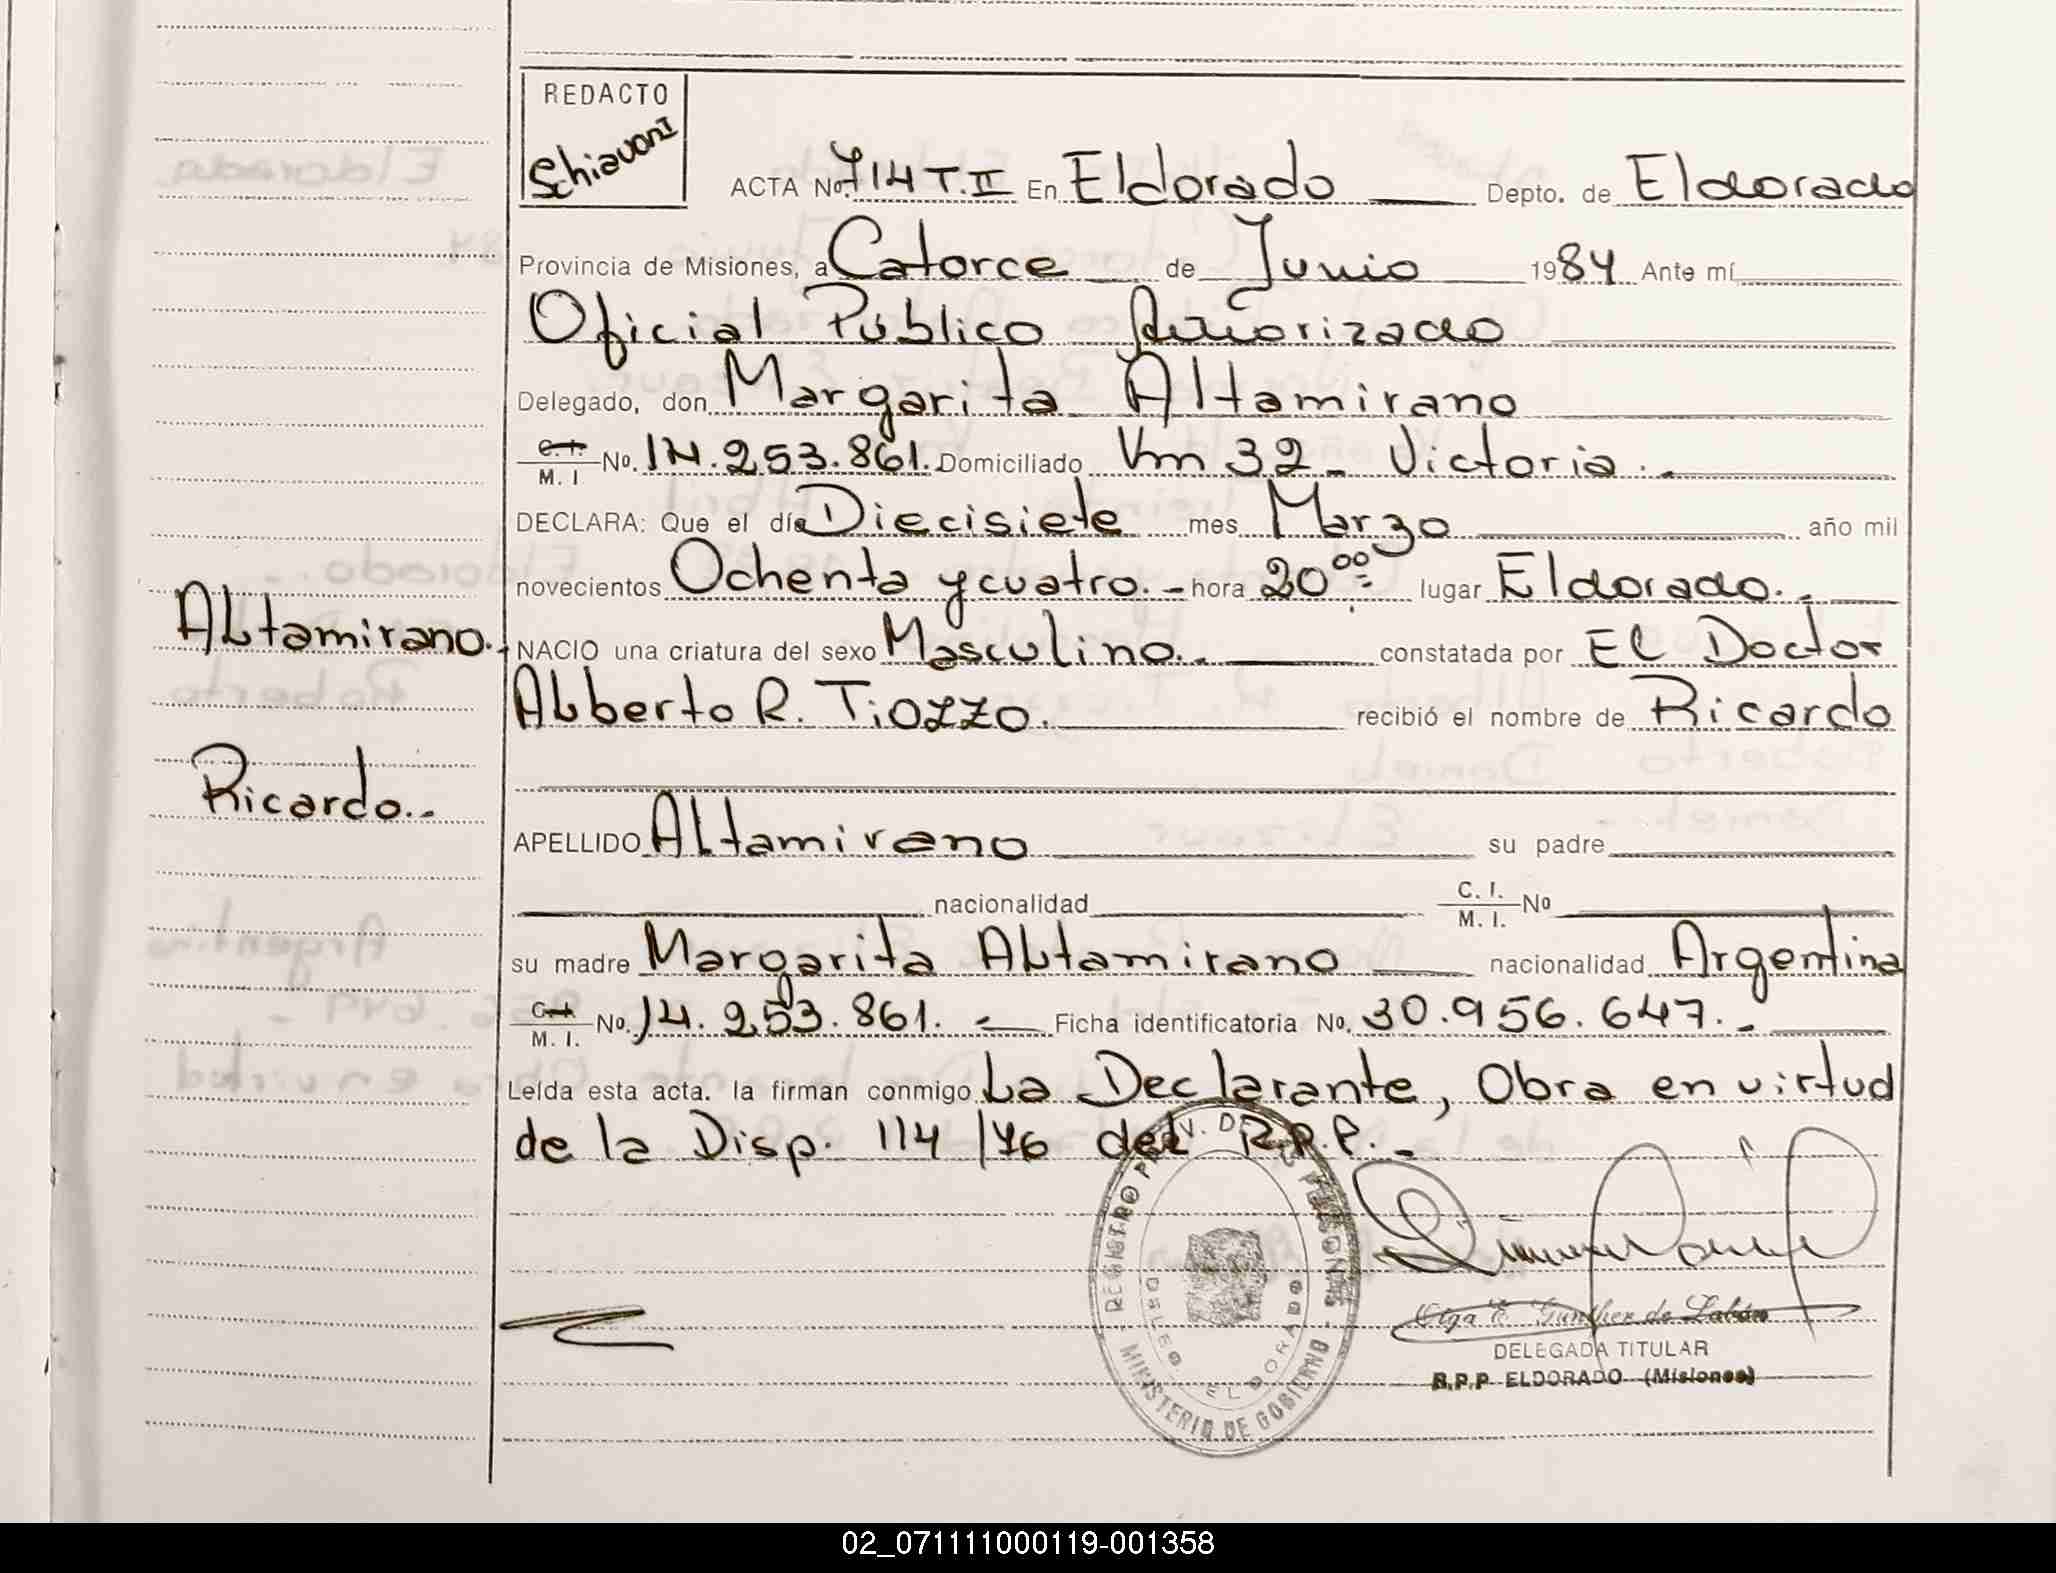 REDACTO
Schiavoni
ACTA No. 714 T. II En Eldorado Depto. de Eldorado
Provincia de Misiones, a Catorce de Junio 1984 Ante mí
Oficial Público Autorizado
Delegado, don Margarita Altamirano
C. I. / M. I No. 14.253.861. Domiciliado Km 32 - Victoria.-
DECLARA: Que el día Diecisiete mes Marzo año mil
novecientos Ochenta y cuatro.- hora 20 00 lugar Eldorado.-
Altamirano.- NACIO una criatura del sexo Masculino.- constatada por El Doctor
Alberto R. Tiozzo. recibió el nombre de Ricardo
Ricardo.-
APELLIDO Altamirano su padre
nacionalidad C. I. / M. I. No
su madre Margarita Altamirano nacionalidad Argentina
C. I. / M. I. No. 14.253.861.- Ficha identificatoria No. 30.956.647.-
Leída esta acta. la firman conmigo La Declarante, Obra en virtud
de la Disp. 114/76 del R.P.P.-
REGISTRO PROV. DE LAS PERSONAS - MINISTERIO DE GOBIERNO -
DELEG. ELDORADO
Olga E. Gunther de Labán
DELEGADA TITULAR
R.P.P. ELDORADO (Misiones)
02_071111000119-001358